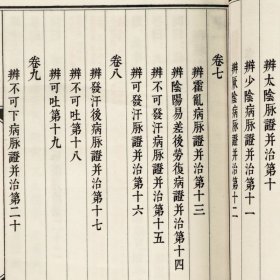 辨太陰脉證并治第十
辨少陰病脉證并治第十一
辨厥陰病脉證并治第十二
卷七
辨霍亂病脉證并治第十三
辨陰陽易差後勞復病證并治第十四
辨不可發汗病脉證并治第十五
辨可發汗脉證并治第十六
卷八
辨發汗後病脉證并治第十七
辨不可吐第十八
辨可吐第十九
卷九
辨不可下病脉證并治第二十